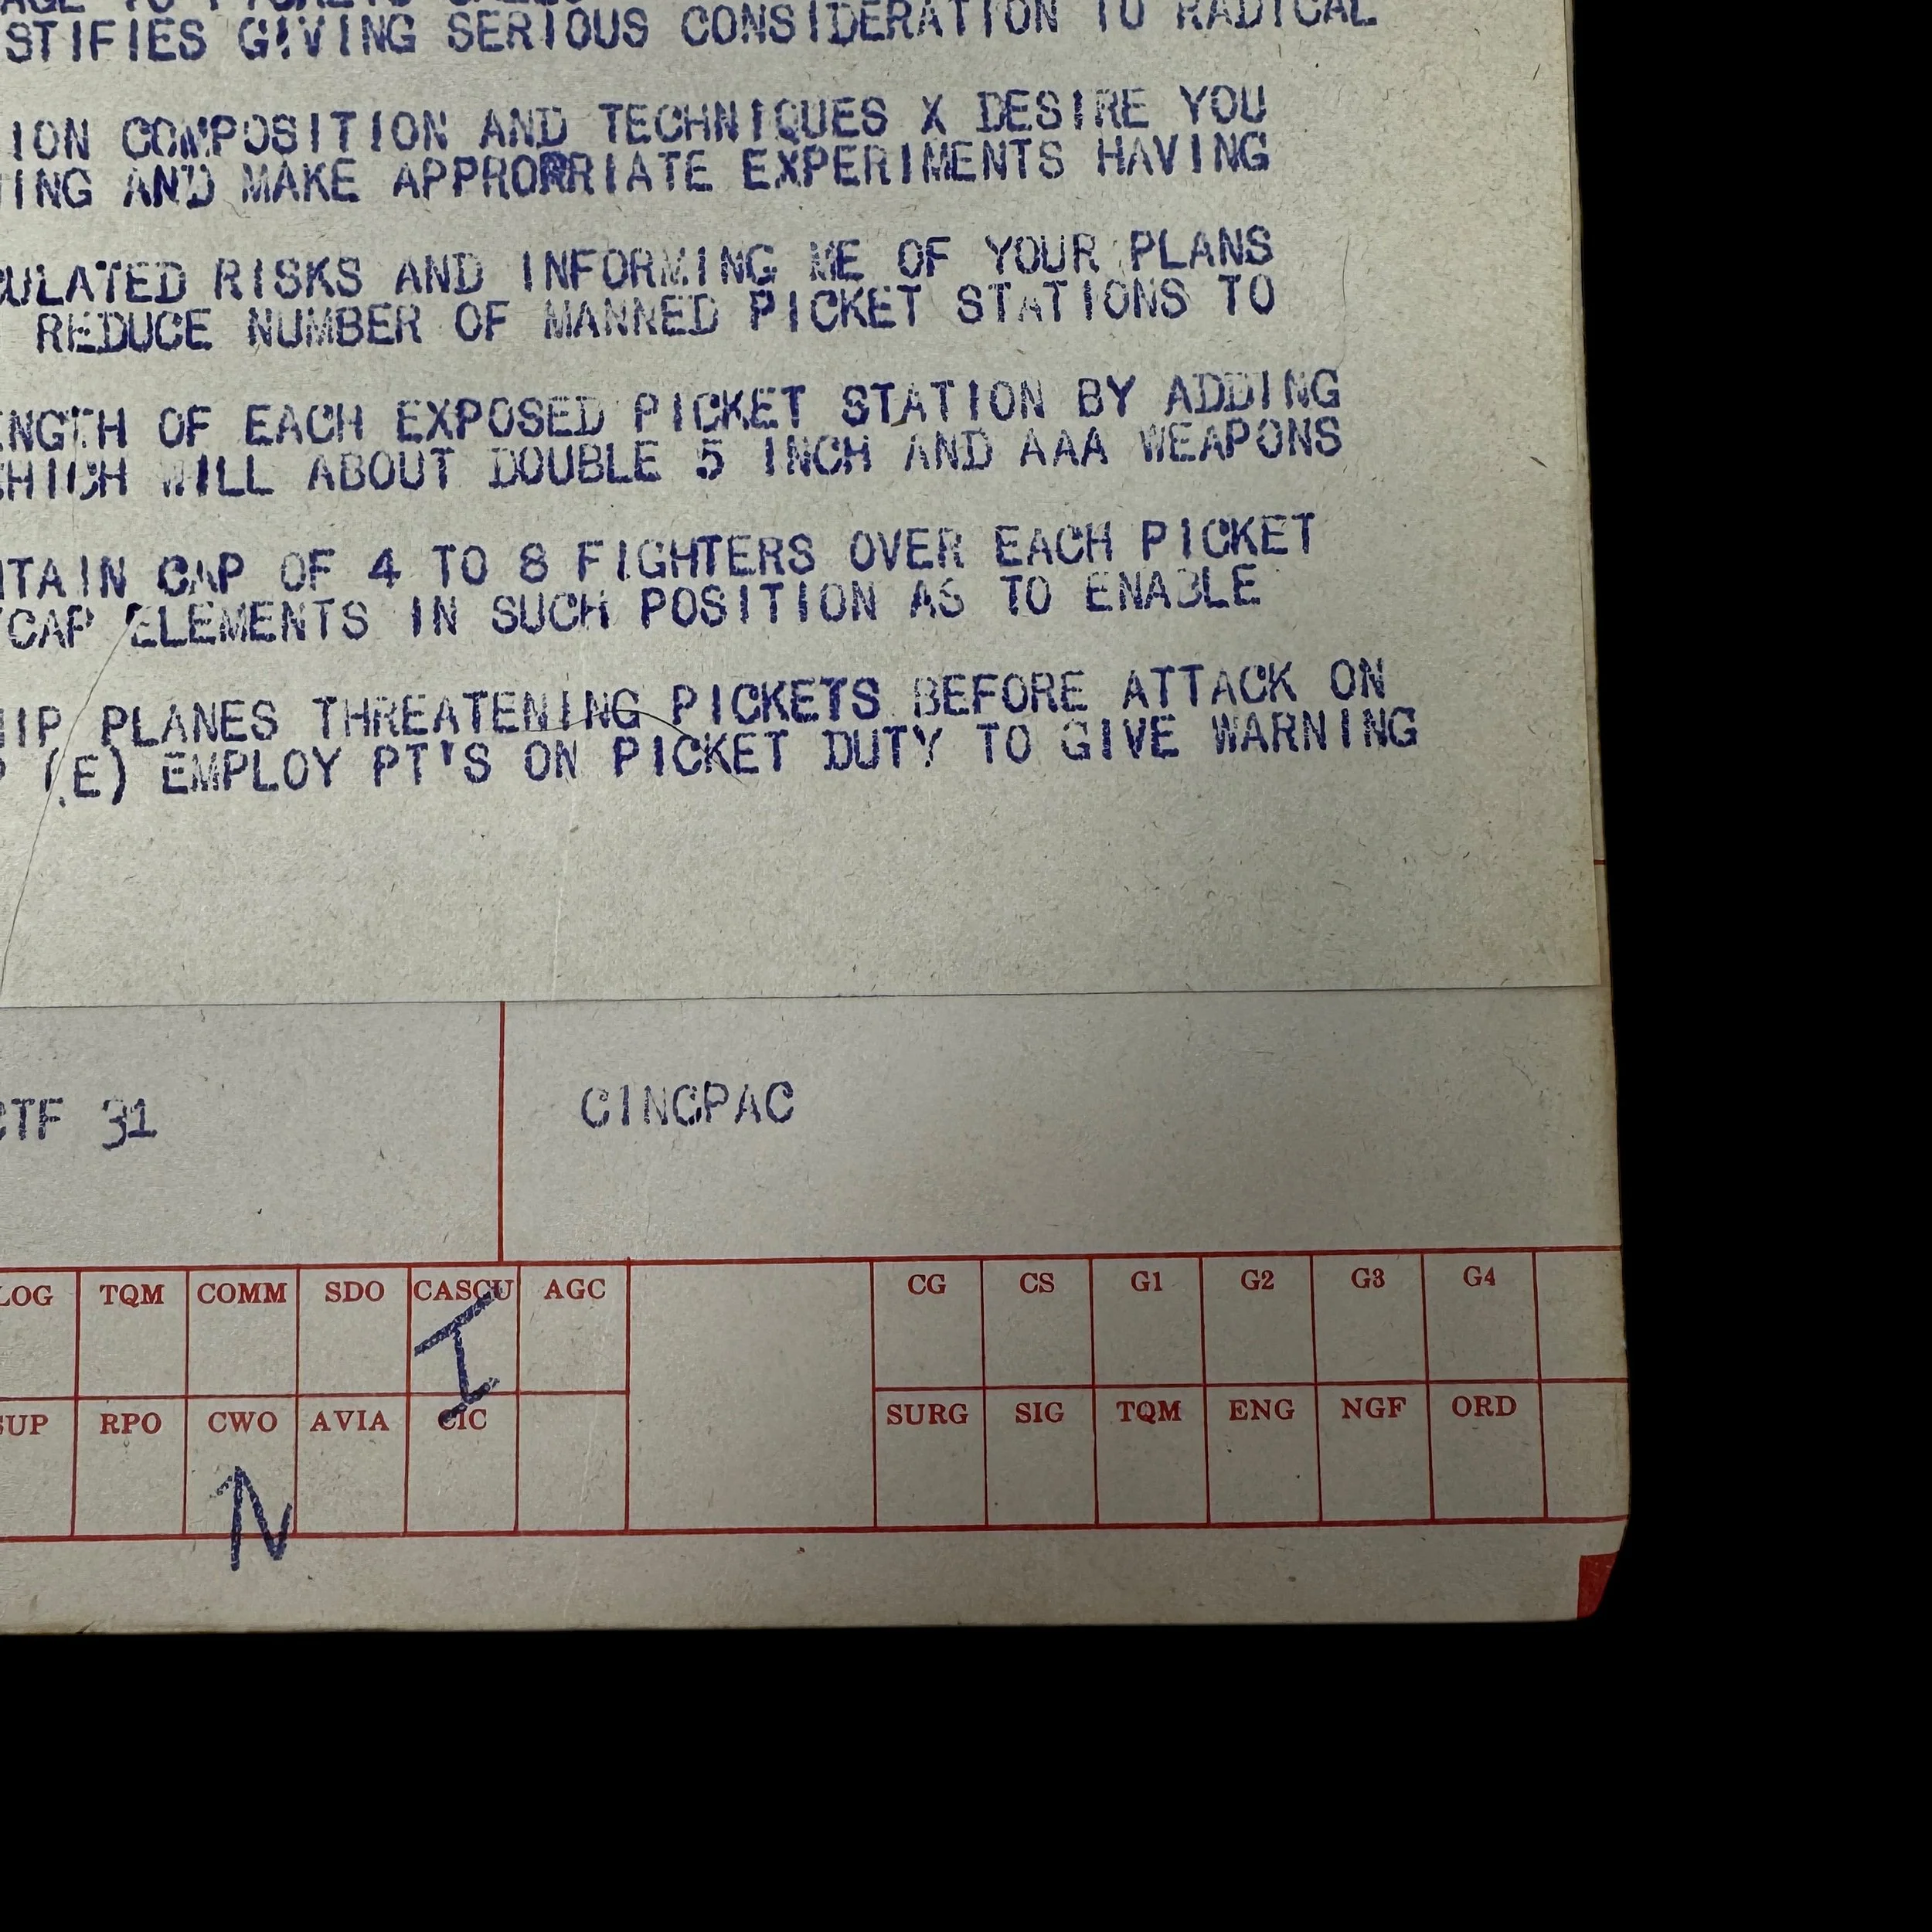 STIFIES GIVING SERIOUS CONSIDERATION TO RADICAL
ION COMPOSITION AND TECHNIQUES X DESIRE YOU
TING AND MAKE APPROPRIATE EXPERIMENTS HAVING
CULATED RISKS AND INFORMING ME OF YOUR PLANS
REDUCE NUMBER OF MANNED PICKET STATIONS TO
ENGTH OF EACH EXPOSED PICKET STATION BY ADDING
WHICH WILL ABOUT DOUBLE 5 INCH AND AAA WEAPONS
NTAIN CAP OF 4 TO 8 FIGHTERS OVER EACH PICKET
CAP ELEMENTS IN SUCH POSITION AS TO ENABLE
HIP PLANES THREATENING PICKETS BEFORE ATTACK ON
P (E) EMPLOY PT'S ON PICKET DUTY TO GIVE WARNING
CTF 31 CINCPAC
LOG TQM COMM SDO CASCU AGC CG CS G1 G2 G3 G4
I
SUP RPO CWO AVIA CIC SURG SIG TQM ENG NGF ORD
N